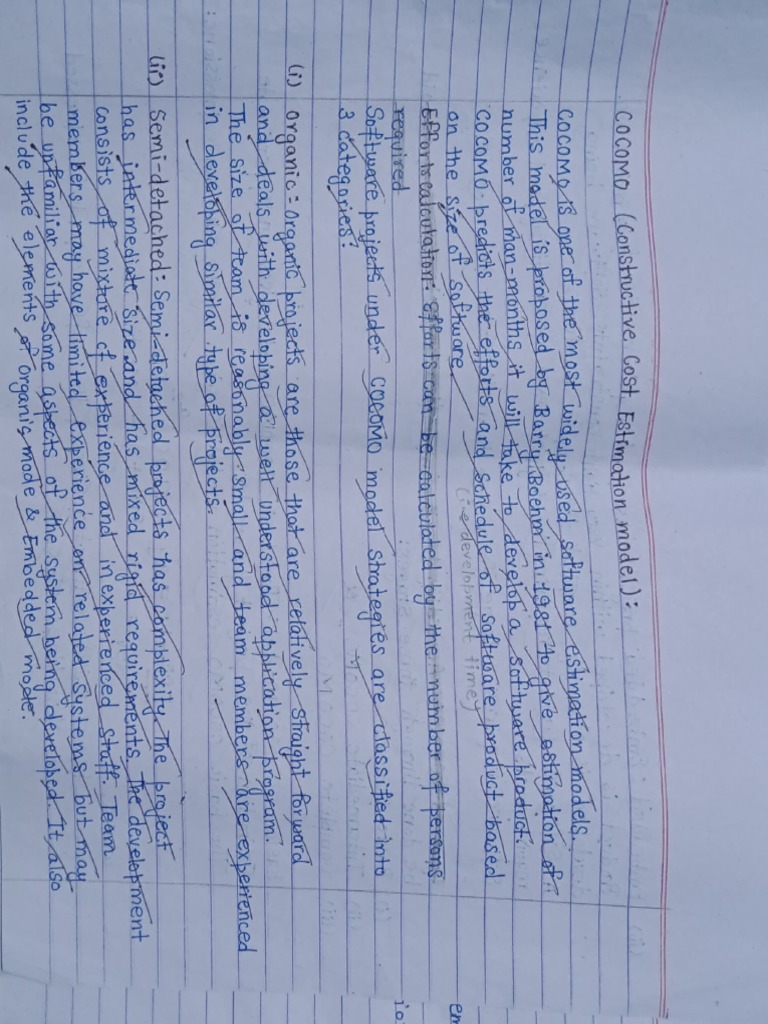 COCOMO (Constructive Cost Estimation model):
COCOMO is one of the most widely used software estimation models.
This model is proposed by Barry Boehm in 1981 to give estimation of
number of man-months it will take to develop a software product.
COCOMO predicts the efforts and schedule of software product based
(i.e development time)
on the size of software.
Effort calculation: efforts can be calculated by the number of persons
required
Software projects under COCOMO model strategies are classified into
3 categories:
(i) Organic: Organic projects are those that are relatively straight forward
and deals with developing a well understood application program.
The size of team is reasonably small and team members are experienced
in developing similar type of projects.
(ii) Semi-detached: Semi-detached projects has complexity. The project
has intermediate size and has mixed rigid requirements. The development
consists of mixture of experience and inexperienced staff. Team
members may have limited experience on related systems but may
be unfamiliar with some aspects of the system being developed. It also
include the elements of organic mode & Embedded mode.
em